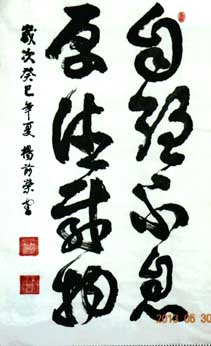 自强不息
厚德载物
岁次癸巳年夏
2013 06 30